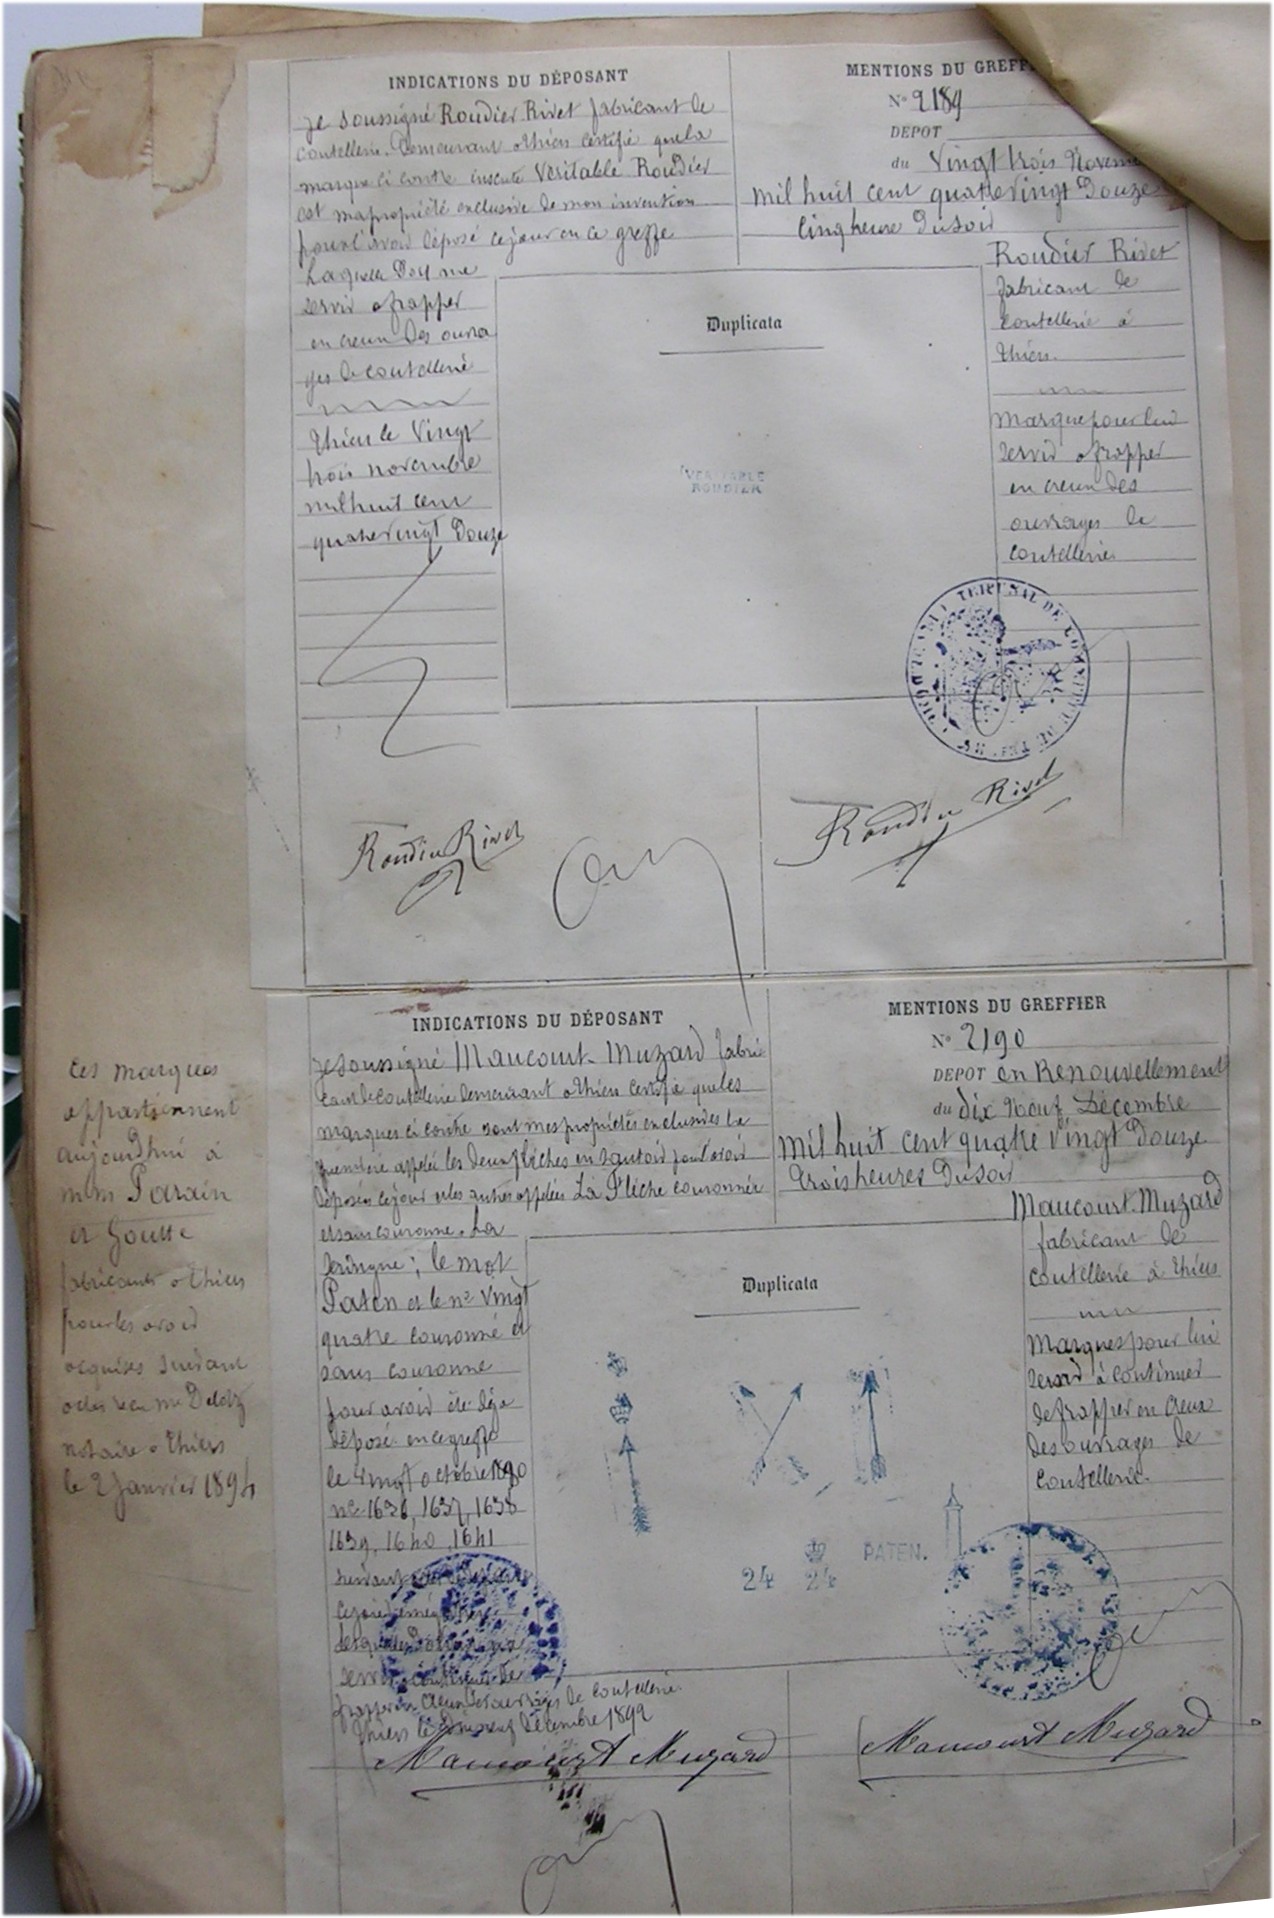 INDICATIONS DU DÉPOSANT
Je soussigné Roudier Rivet fabricant de
coutellerie Demeurant a thiers certifie que la
marque ci contre inscrite Veritable Roudier
est ma propriété exclusive de mon invention
pour l'avoir déposé ce jour en ce greffe
Laquelle Doit me
servir a frapper
en creux Des ouvra
ges de coutellerie
thiers le Vingt
trois novembre
mil huit cent
quatre vingt Douze
MENTIONS DU GREFFI
N° 2189
DEPOT
du Vingt trois Novem
mil huit cent quatre vingt Douze
Cinq heure Du soir
Roudier Rivet
fabricant de
coutellerie à
thiers.
Marque pour lui
servir a frapper
en creux Des
ouvrages de
coutelleries
Duplicata
VERITABLE
ROUDIER
TRIBUNAL DE COMMERCE DE THIERS
Roudier Rivet
Roudier Rivet
INDICATIONS DU DÉPOSANT
Je soussigné Maucourt-Muzard fabri
cant de coutellerie demeurant a thiers certifie que les
marques ci contre sont mes propriétés exclusives la
première appelée les deux flèches en sautoir pour l'avoir
déposée ce jour et les autres appelées La Flèche couronnée
et sans couronne. La
seringue; le mot
Paten et le n° vingt
quatre couronné et
sans couronne
pour avoir été déja
déposé en ce greffe
le vingt octobre 1890
n°s 1636, 1637, 1638
1639, 1640, 1641
suivant
ce jour
servir continuer de
frapper en creux des ouvrages de coutellerie.
Thiers le dix neuf Décembre 1892
MENTIONS DU GREFFIER
N° 2190
DEPOT en Renouvellement
du dix Neuf Décembre
Mil huit cent quatre vingt Douze
trois heures Du soir
Maucourt-Muzard
fabricant de
coutellerie à thiers
Marques pour lui
servir à continuer
de frapper en creux
des ouvrages de
coutellerie.
Duplicata
PATEN.
24 24
Maucourt Muzard
Maucourt Muzard
Ces marques
appartiennent
aujourdhui à
mm Parain
et Goutte
fabricants a thiers
pour les avoir
acquises suivant
acte reçu me
notaire a thiers
le 2 janvier 1894